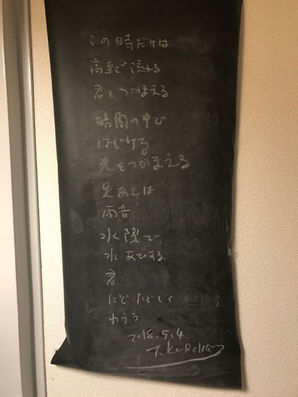 この時だけは
高架で流れる
君をつかまえる
暗闇の中で
はじける
光をつかまえる
足あとは
雨音
水際で
水あびする
君
にど
わらう
2018.5.4